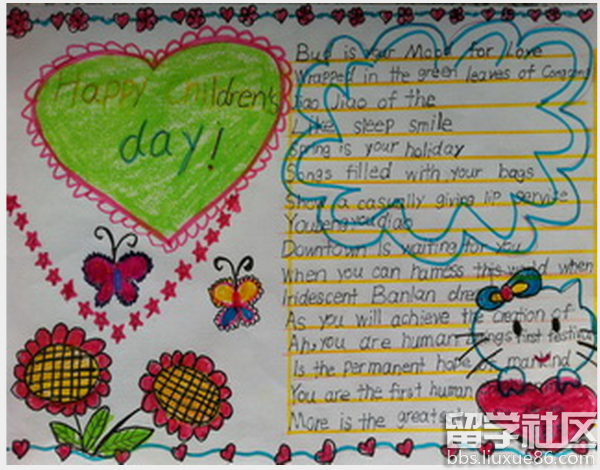 Happy Children's
day!
Bud is your Mood for Love
Wrapped in the green leaves of
Jiao Jiao of the
Like sleep smile
Spring is your holiday
Songs filled with your bags
Show a casually giving lip service
Youbengyoudiao
Downtown is waiting for you
When you can harness this world when
Iridescent Banlan
As you will achieve the creation of
Ah, you are human beings first festival
Is the permanent hope of mankind
You are the first human
More is the greatest
留学社区
bbs.liuxue86.com